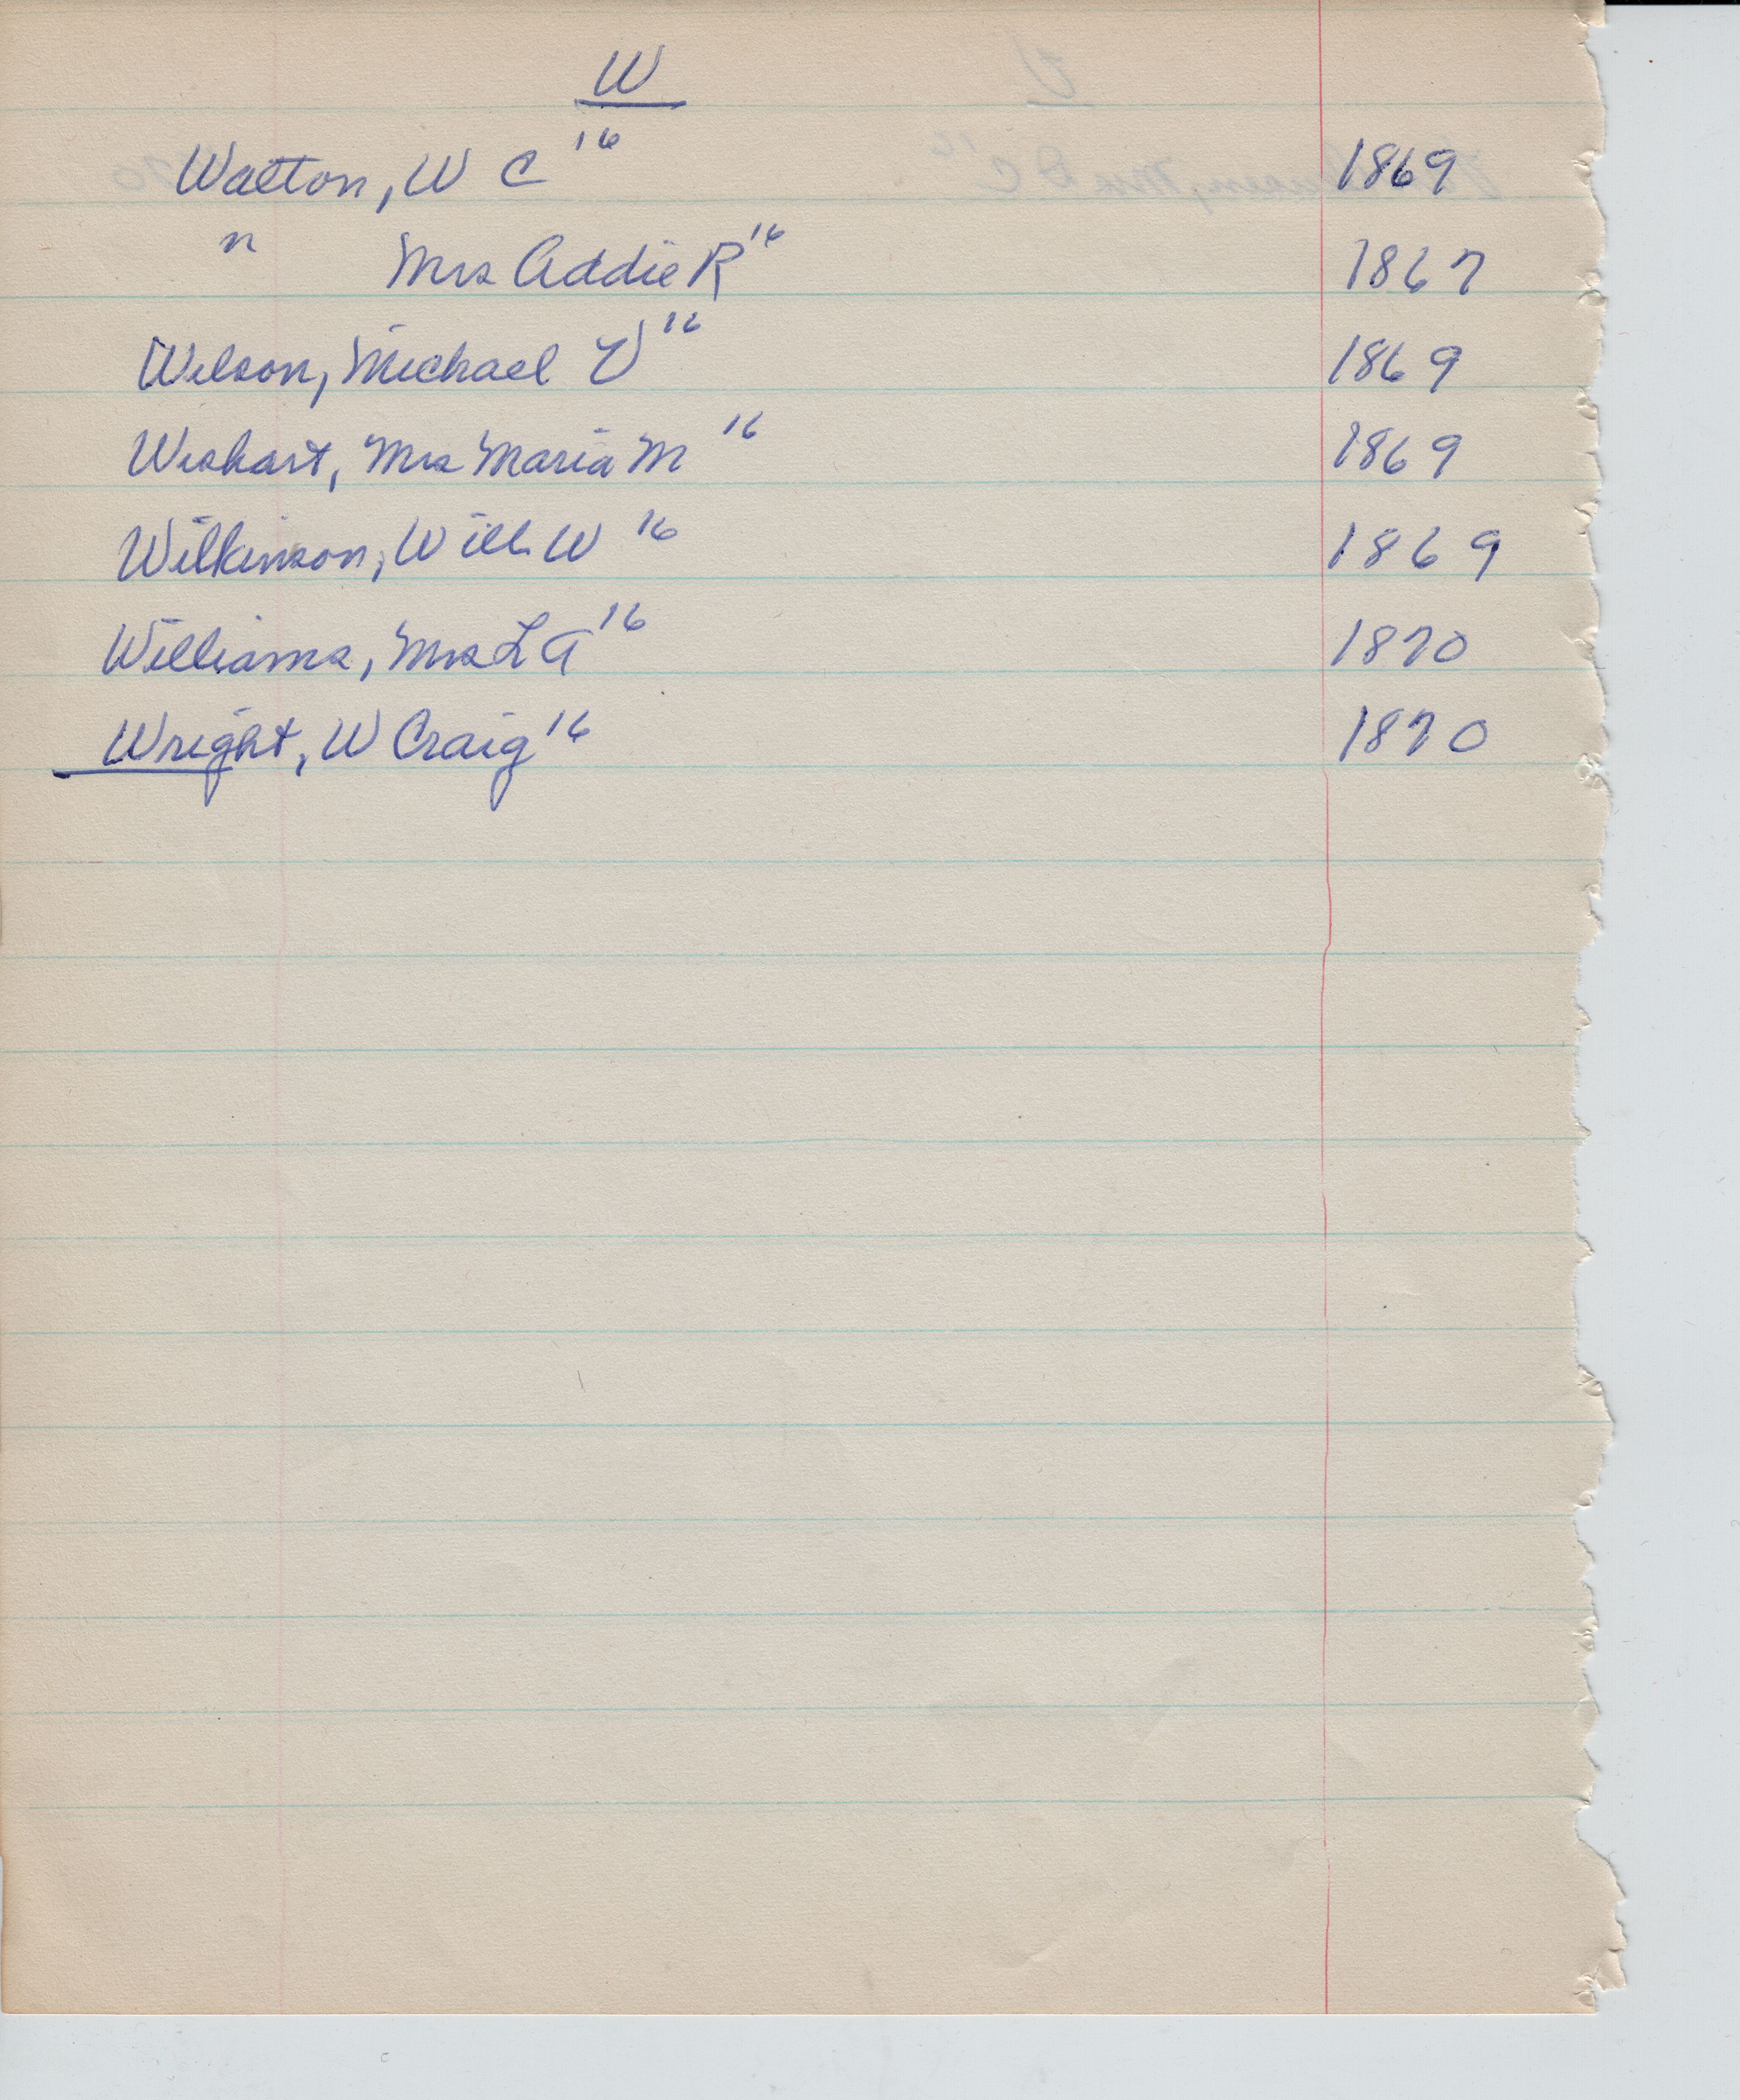 W
Walton, W C 16 1869
" Mrs Addie R 16 1867
Wilson, Michael V 16 1869
Wishart, Mrs Maria M 16 1869
Wilkinson, Will W 16 1869
Williams, Mrs L A 16 1870
Wright, W Craig 16 1870